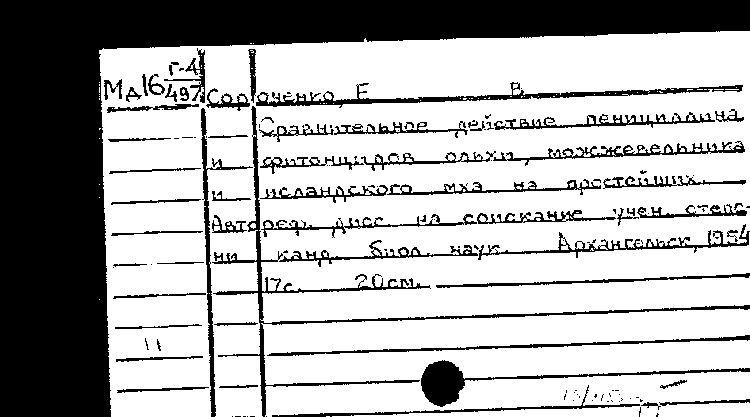 Мд16 Г-4/497
Сороченко, Е В
Сравнительное действие пенициллина
и фитонцидов ольхи, можжевельника
и исландского мха на простейших.
Автореф. дисс. на соискание учен. степе-
ни канд. биол. наук. Архангельск, 1954
17с. 20см.
11